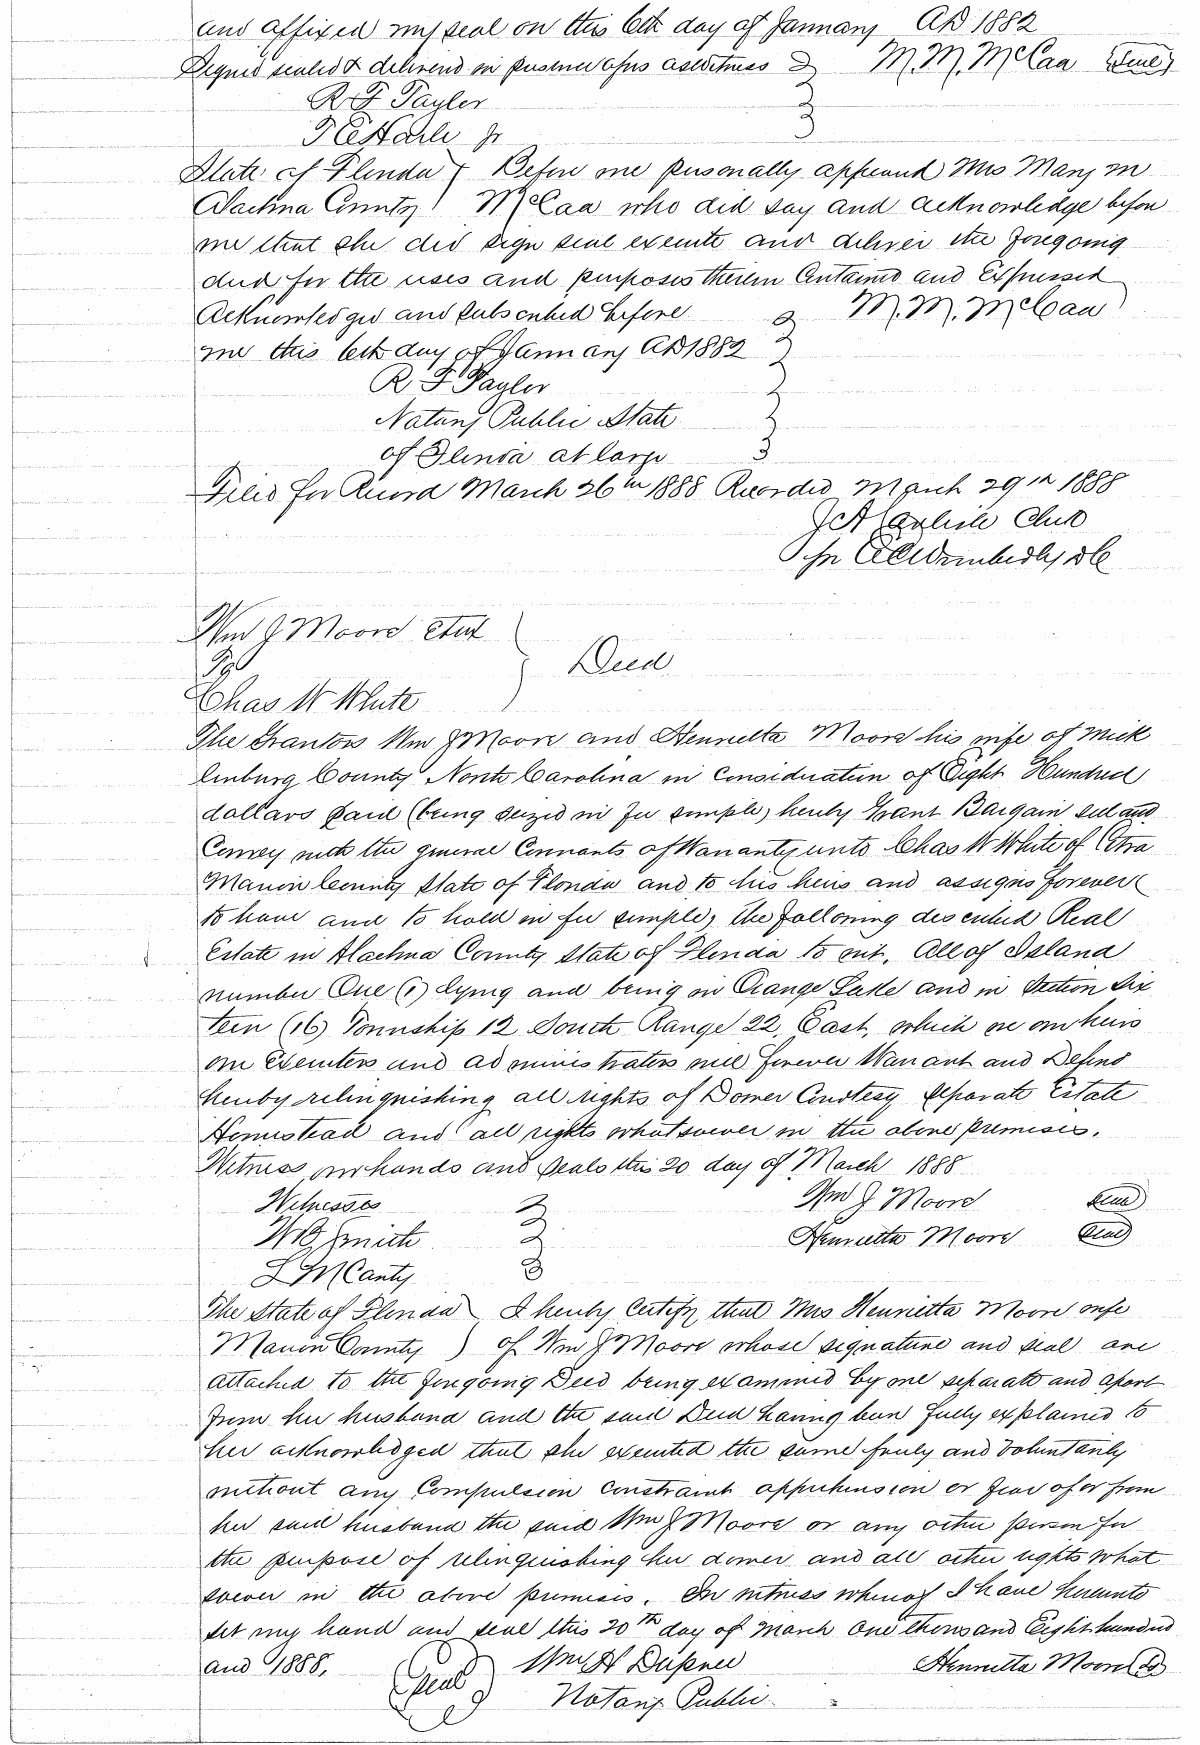 and affixed my seal on this 6th day of January AD 1882
Signed sealed & delivered in presence of us as witness M. M. McCaa (Seal)
R F Tayler
Jr
State of Florida } Before me personally appeared Mrs Mary M
Alachua County } McCaa who did say and acknowledge before
me that she did sign seal execute and deliver the foregoing
deed for the uses and purposes therein Contained and Expressed
Acknowledged and subscribed before M. M. McCaa
me this 6th day of January AD 1882
R F Tayler
Notary Public State
of Florida at large
Filed for Record March 26th 1888 Recorded March 29th 1888
J A Carlisle Clerk
Per DC
Wm J Moore et ux
To } Deed
Chas W White
The Grantors Wm J Moore and Henrietta Moore his wife of Meck
linburg County North Carolina in Consideration of Eight Hundred
dollars paid (being seized in fee simple) hereby Grant Bargain sell and
Convey with the general Covenants of Warranty unto Chas W White of Citra
Marion County State of Florida and to his heirs and assigns forever
to have and to hold in fee simple, the following described Real
Estate in Alachua County State of Florida to wit, All of Island
number One (1) lying and being in Orange Lake and in Section Six
teen (16) Township 12 South Range 22, East, which we our heirs
our Executors and administrators will forever Warrant and Defend
hereby relinquishing all rights of Dower Curtesy Separate Estate
Homestead and all rights whatsoever in the above premises.
Witness our hands and seals this 20 day of March 1888
Witnesses Wm J Moore (Seal)
W B Smith Henrietta Moore (Seal)
L M Canty
The State of Florida } I hereby Certify, that Mrs Henrietta Moore wife
Marion County ) of Wm J Moore whose signature and seal are
attached to the foregoing Deed being examined by me separate and apart
from her husband and the said Deed having been fully explained to
her acknowledged that she executed the same freely and voluntarily
without any Compulsion constraint apprehension or fear of or from
her said husband the said Wm J Moore or any other person for
the purpose of relinquishing her dower and all other rights what
soever in the above premises. In witness whereof I have hereunto
set my hand and seal this 20th day of March One thousand Eight hundred
and 1888, (Seal) Wm H Dupree Henrietta Moore
Notary Public